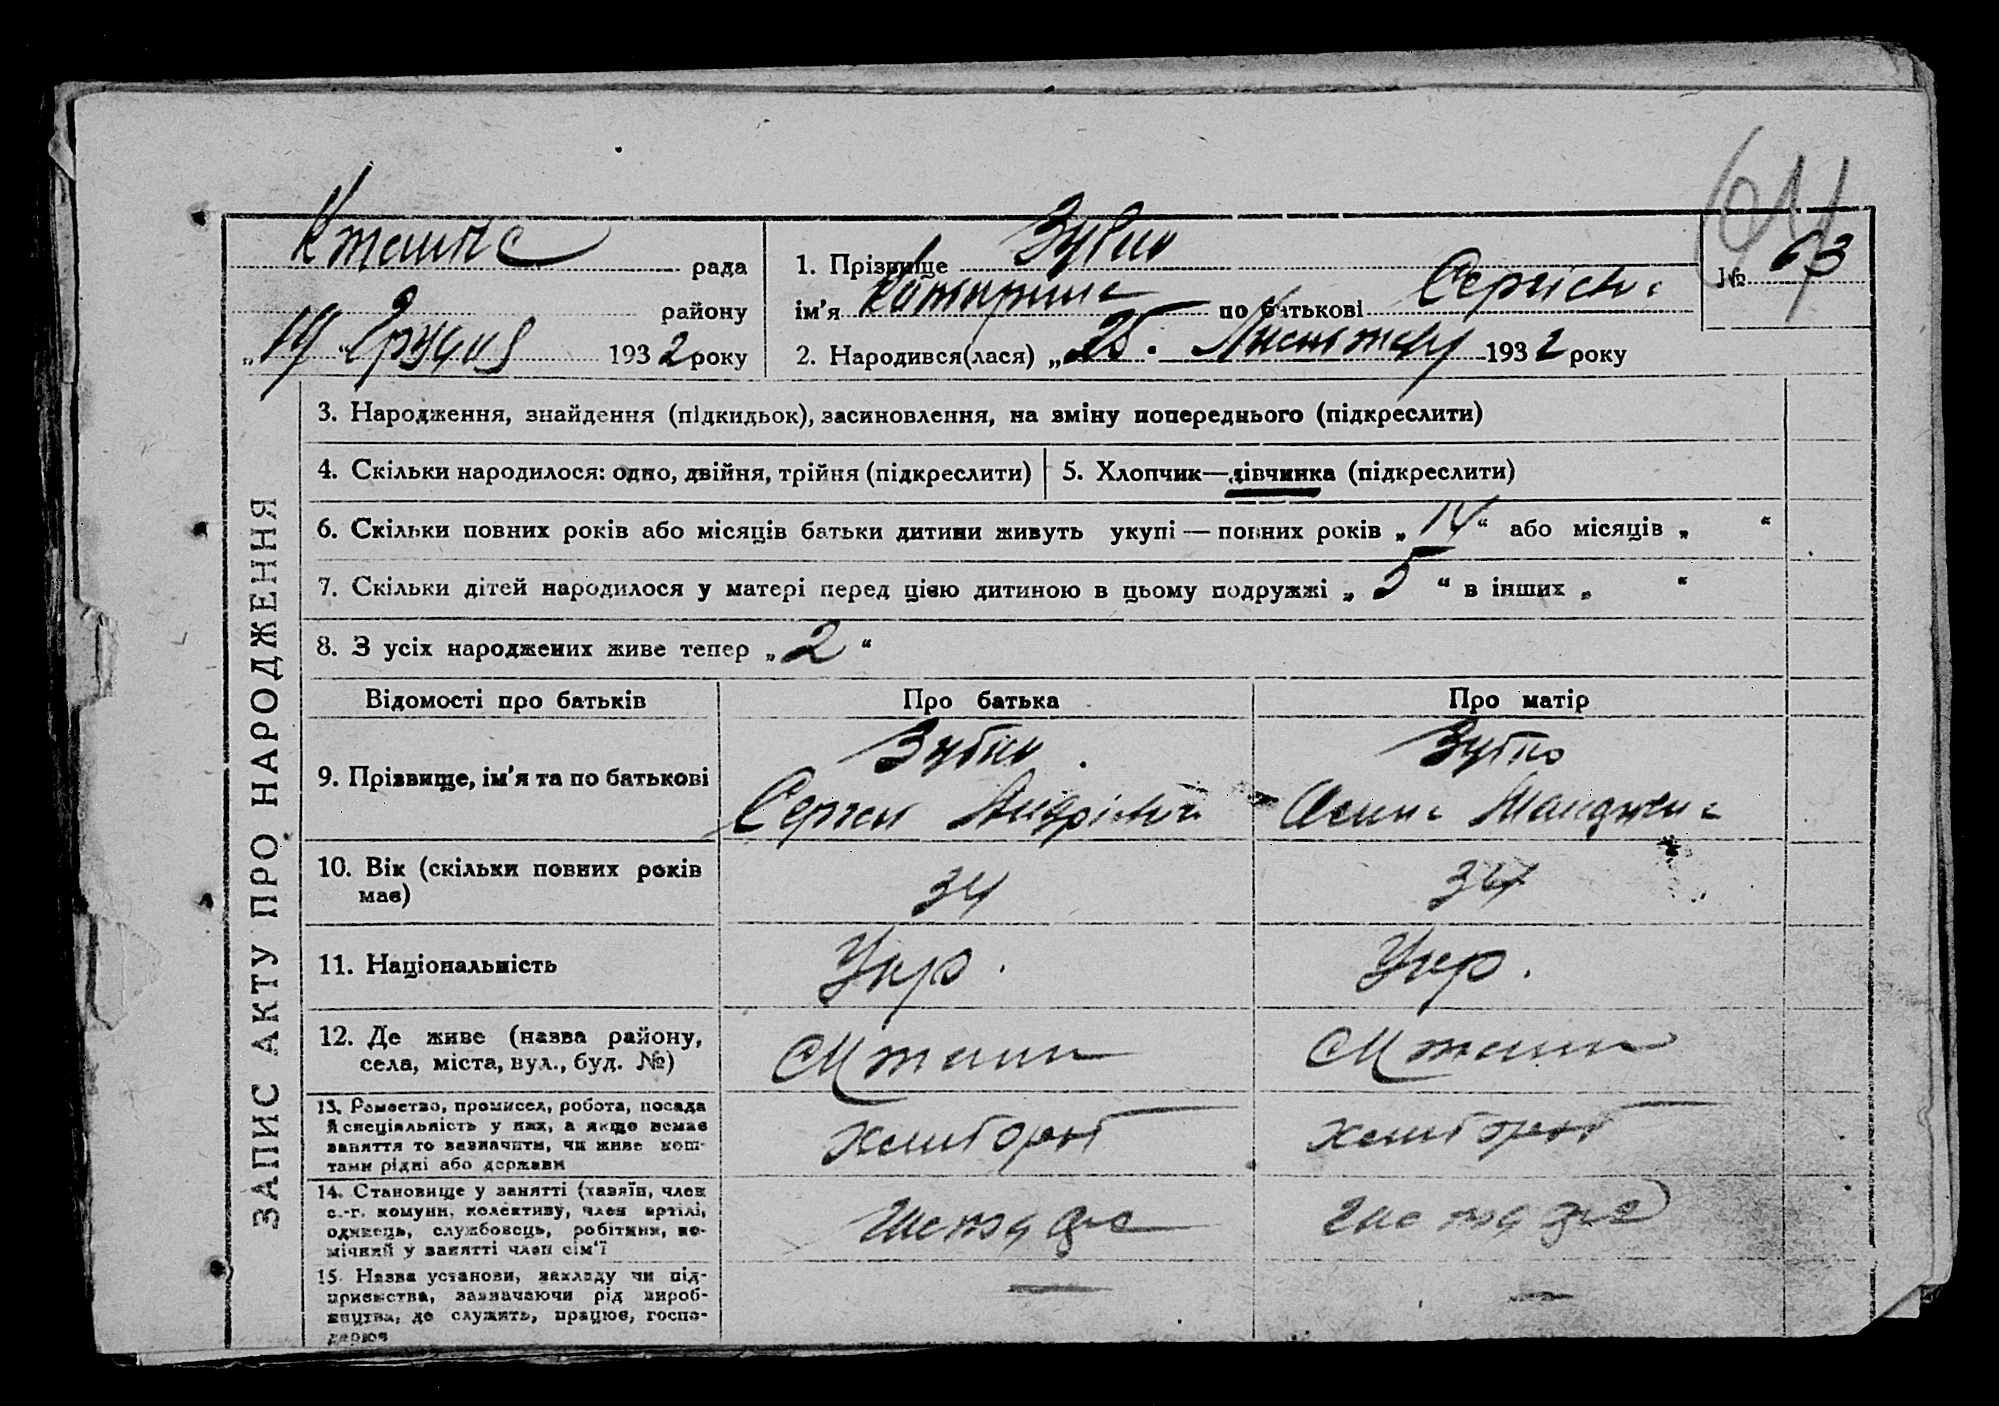 64
рада
району
„19“ Грудня 1932 року
1. Прізвище Зубко
ім'я Катерина по батькові Сергієвна
2. Народився(лася) „25“ Листопаду 1932 року
№ 63
ЗАПИС АКТУ ПРО НАРОДЖЕННЯ
3. Народження, знайдення (підкидьок), засиновлення, на зміну попереднього (підкреслити)
4. Скільки народилося: одно, двійня, трійня (підкреслити)
5. Хлопчик—дівчинка (підкреслити)
6. Скільки повних років або місяців батьки дитини живуть укупі — повних років „14“ або місяців „ “
7. Скільки дітей народилося у матері перед цією дитиною в цьому подружжі „5“ в інших „ “
8. З усіх народжених живе тепер „2“
Відомості про батьків
Про батька
Про матір
9. Прізвище, ім'я та по батькові
Зубко
Сергій Андрієвич
Зубко
10. Вік (скільки повних років
має)
34
34
11. Національність
Укр.
Укр.
12. Де живе (назва району,
села, міста, вул., буд. №)
13. Ремество, промисел, робота, посада
й спеціяльність у них, а якщо немає
заняття то зазначити, чи живе кош-
тами рідні або держави
хлибороб
хлибороб
14. Становище у занятті (хазяїн, член
с.-г. комуни, колективу, член артілі,
одинець, службовець, робітник, по-
мічний у занятті член сім'ї
15. Назва установи, закладу чи під-
приємства, зазначаючи рід вироб-
ництва, де служить, працює, госпо-
дарює